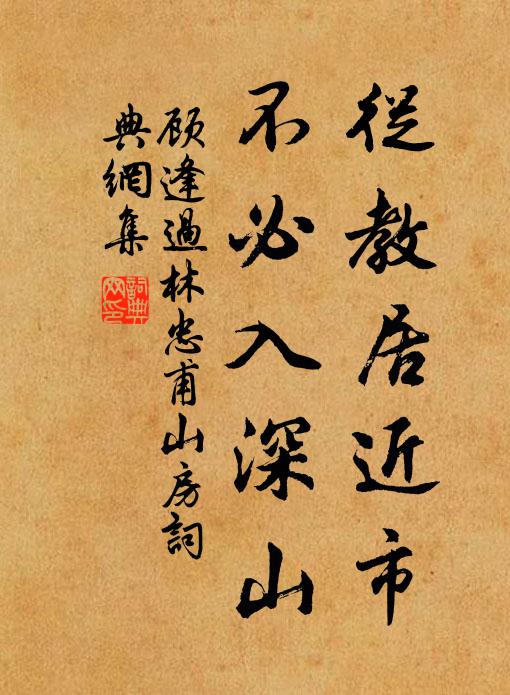 從教居近市
不必入深山
顾逢過林忠甫山房詞
典網集
詞典
网印